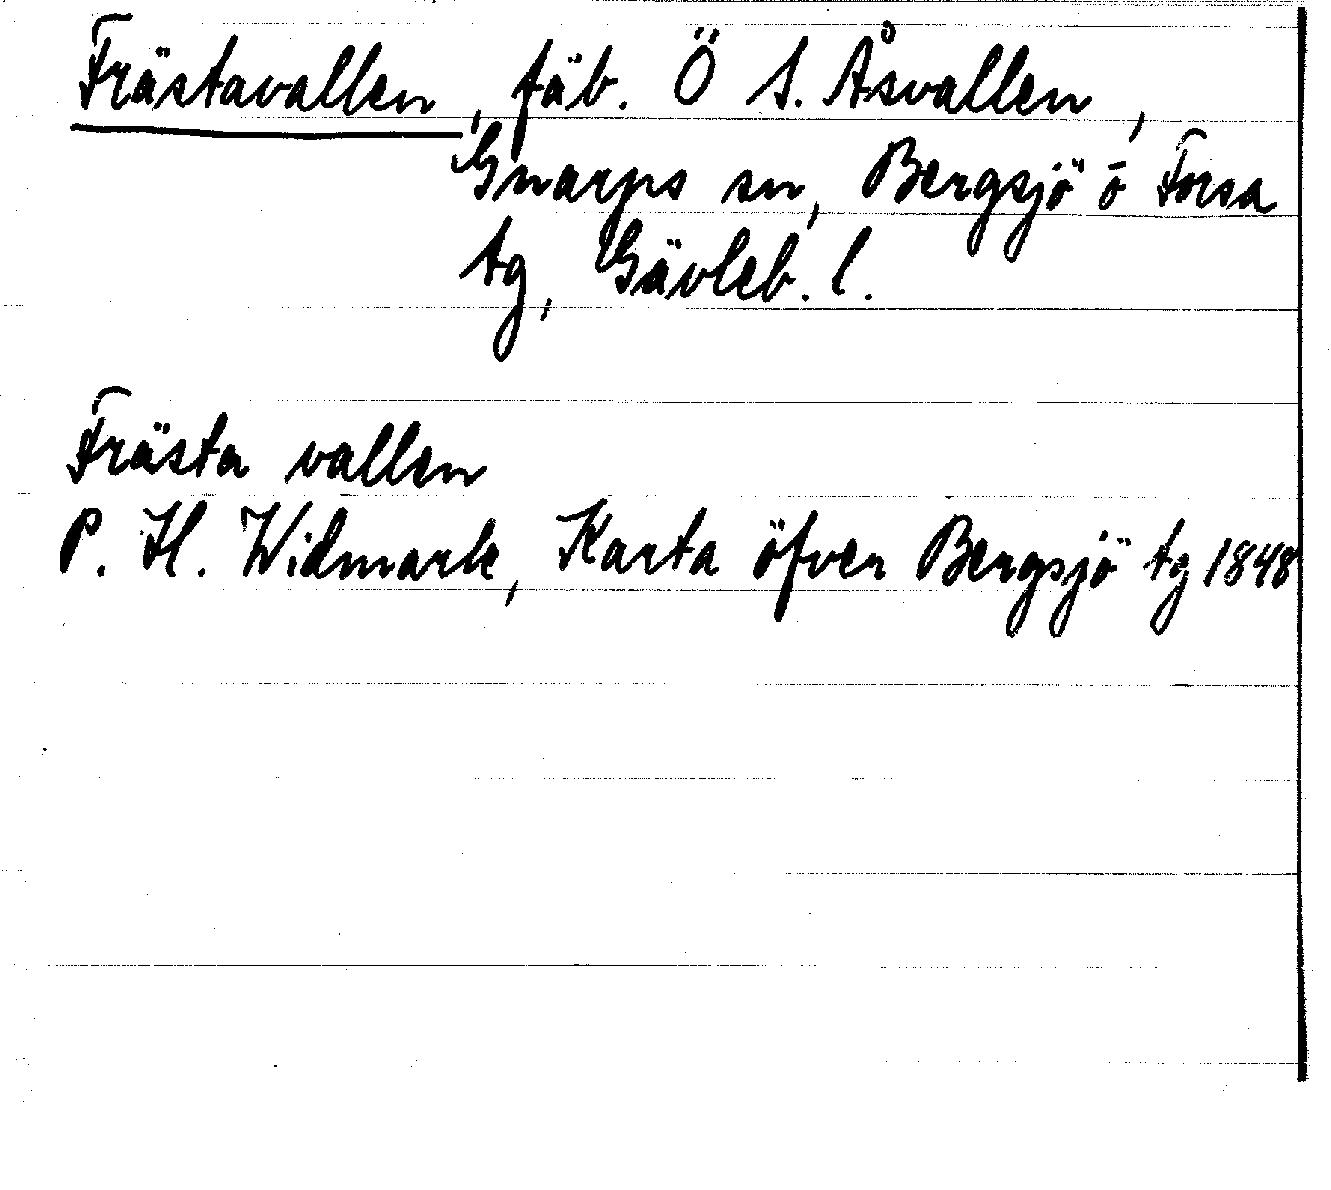 Frästavallen, fäb. Ö S. Åsvallen,
Gnarps sn, Bergsjö o Forsa
tg, Gävleb. l.
Frästa vallen
P. H. Widmark, Karta öfver Bergsjö tg 1848